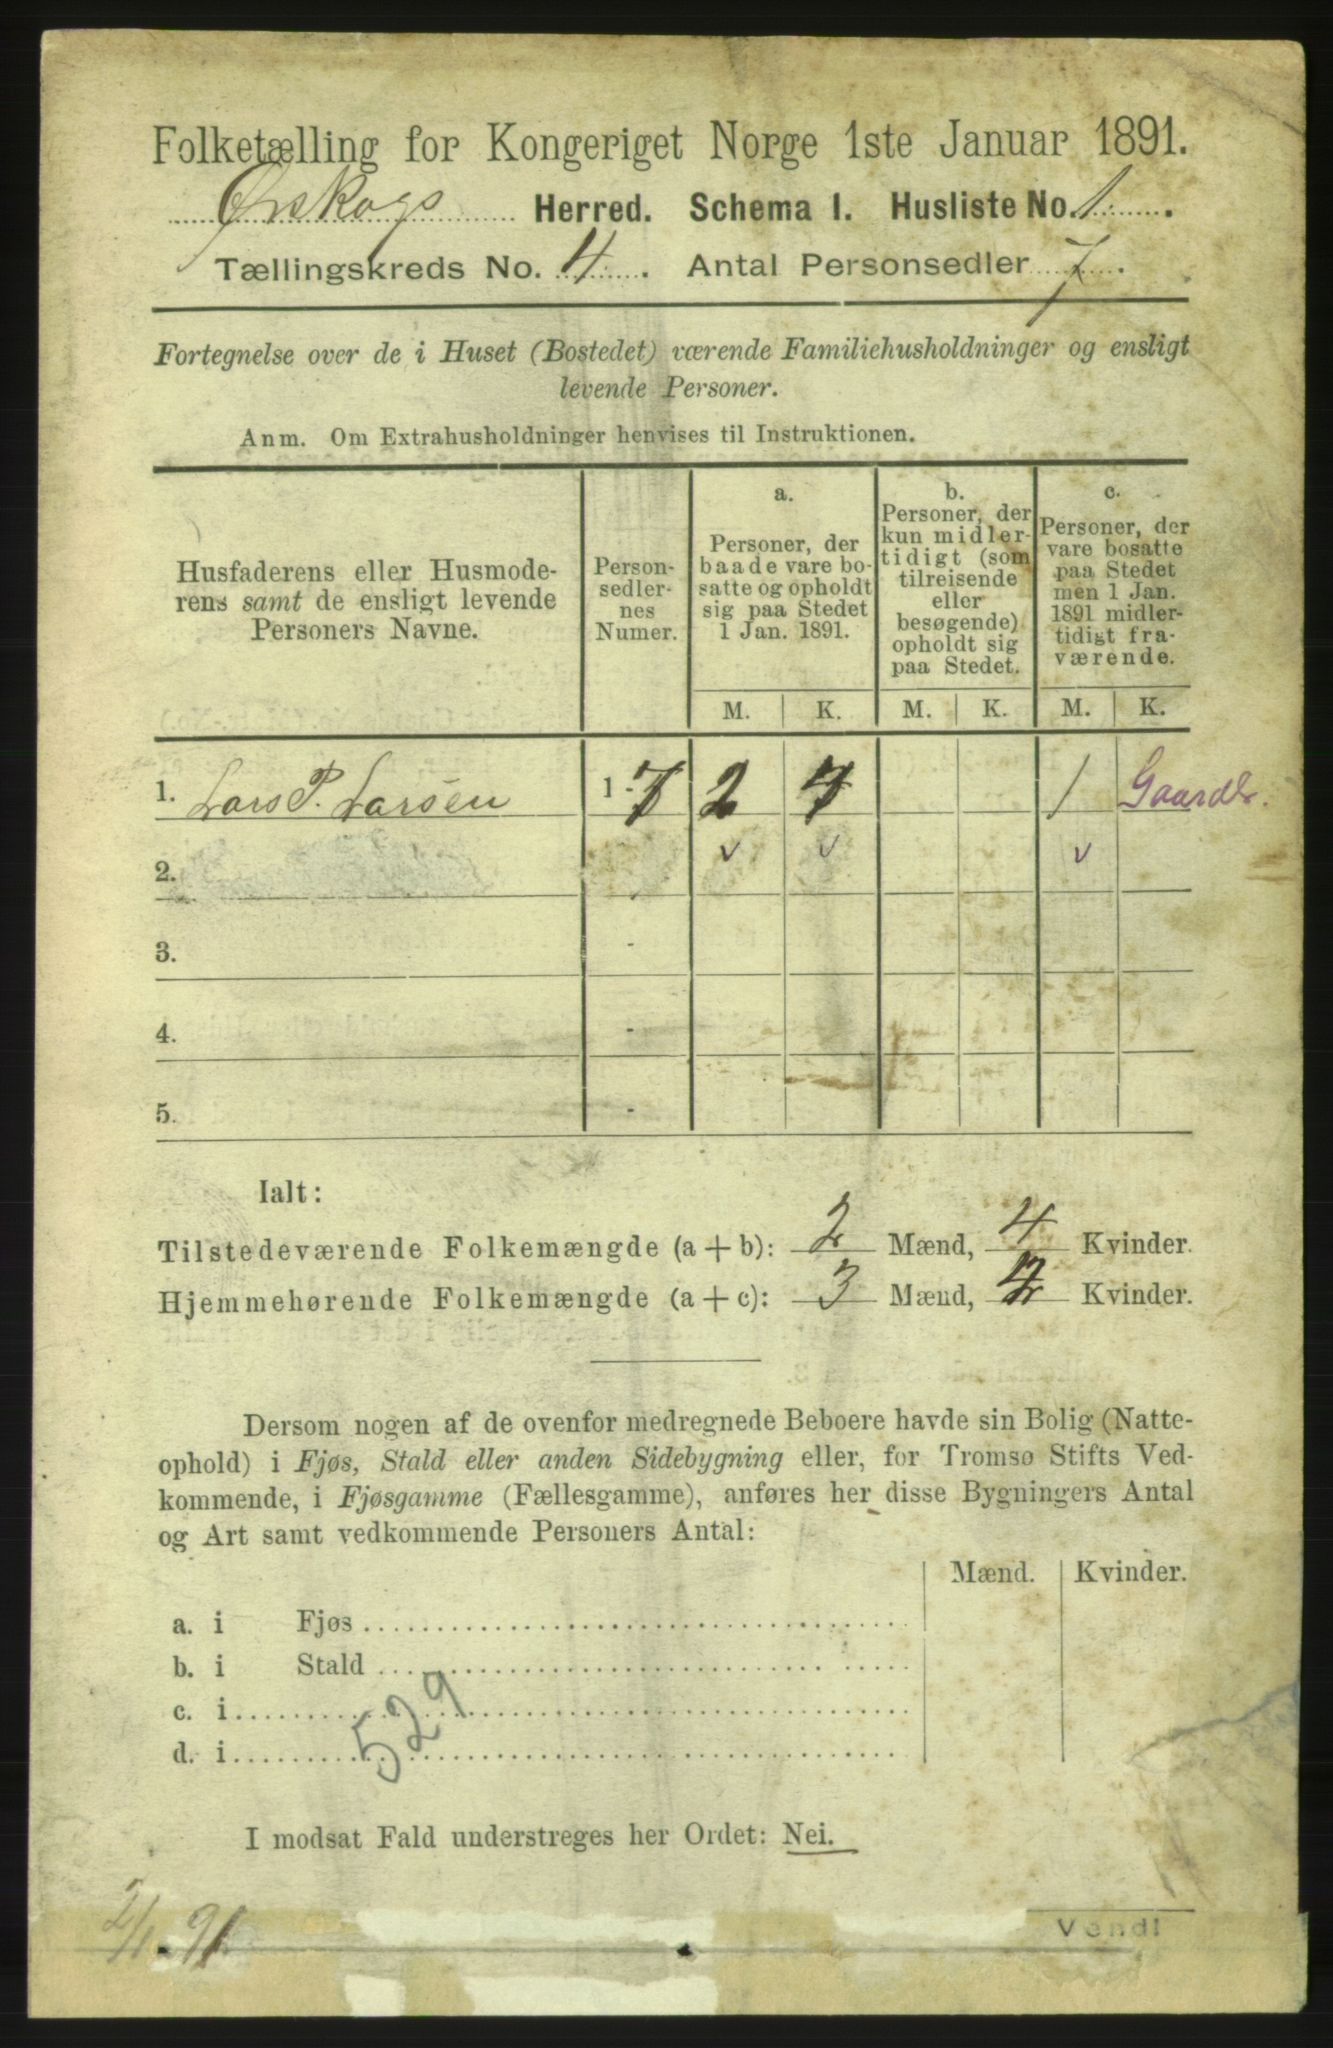 Folketælling for Kongeriget Norge 1ste Januar 1891.
Ørskogs Herred. Schema I. Husliste No. 1.
Tællingskreds No. 4. Antal Personsedler 7.
Fortegnelse over de i Huset (Bostedet) værende Familiehusholdninger og ensligt
levende Personer.
Anm. Om Extrahusholdninger henvises til Instruktionen.
Husfaderens eller Husmode-
rens samt de ensligt levende
Personers Navne.
Person-
sedler-
nes
Numer.
a.
Personer, der
baade vare bo-
satte og opholdt
sig paa Stedet
1 Jan. 1891.
b.
Personer, der
kun midler-
tidigt (som
tilreisende
eller
besøgende)
opholdt sig
paa Stedet.
c.
Personer, der
vare bosatte
paa Stedet
men 1 Jan.
1891 midler-
tidigt fra-
værende.
M. K. M. K. M. K.
1. Lars P. Larsen 1 - 7 2 4 1 Gaardbr.
2. - v v v
3. -
4. -
5. -
Ialt:
Tilstedeværende Folkemængde (a + b): 2 Mænd, 4 Kvinder.
Hjemmehørende Folkemængde (a + c): 3 Mænd, 4 Kvinder.
Dersom nogen af de ovenfor medregnede Beboere havde sin Bolig (Natte-
ophold) i Fjøs, Stald eller anden Sidebygning eller, for Tromsø Stifts Ved-
kommende, i Fjøsgamme (Fællesgamme), anføres her disse Bygningers Antal
og Art samt vedkommende Personers Antal:
Mænd. Kvinder.
a. i Fjøs
b. i Stald
c. i
d. i
529
I modsat Fald understreges her Ordet: Nei.
2/1. 91
Vend!